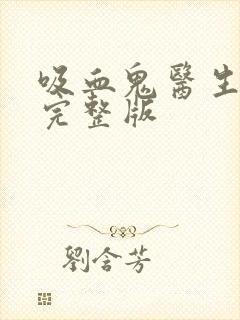 吸血鬼醫生
完整版
劉含芳